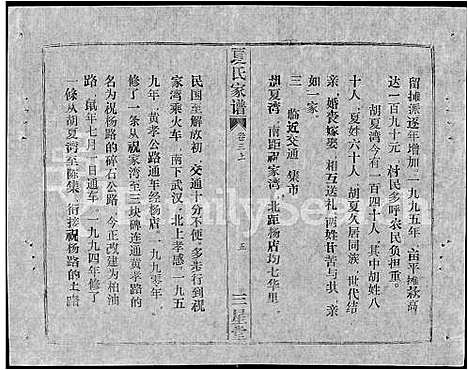 留摊派逐年增加一九九五年，亩平摊款高
达一百九十元，村民多呼农民负担重。
胡夏湾今有一百四十人，其中胡姓八
十人，夏姓六十人，胡夏久居同族，世代结
亲，婚丧嫁娶，相互送礼，两姓甘苦与共，亲
如一家。
三 临近交通 集市
胡夏湾，南距祝家湾，北距杨店均七华里。
夏氏家谱
卷三上
五
三星堂
民国至解放初，交通十分不便，多步行到祝
家湾乘火车，南下武汉，北上孝感，一九五
九年，黄孝公路通车经杨店，一九九零年，
修了一条从祝家湾至三块碑连通黄孝路的
名为祝杨路的碎石公路，今正改建为柏油
路，鼠年七月一日通车，一九九四年修了
一条从胡夏湾至陈集，衔接祝杨路的土路
FamilySearch